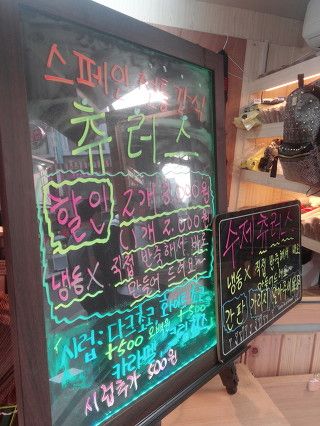 스페인 전통간식
츄러스
할인 2개 3,000원
1개 2,000원
냉동X 직접 반죽해서 바로
만들어 드려요~
시럽: 다크초코 화이트초코
+500 +500
카라멜 크림치즈
시럽추가 500원
수제츄러스
냉동X 직접 반죽해서 바로
만들어
간판